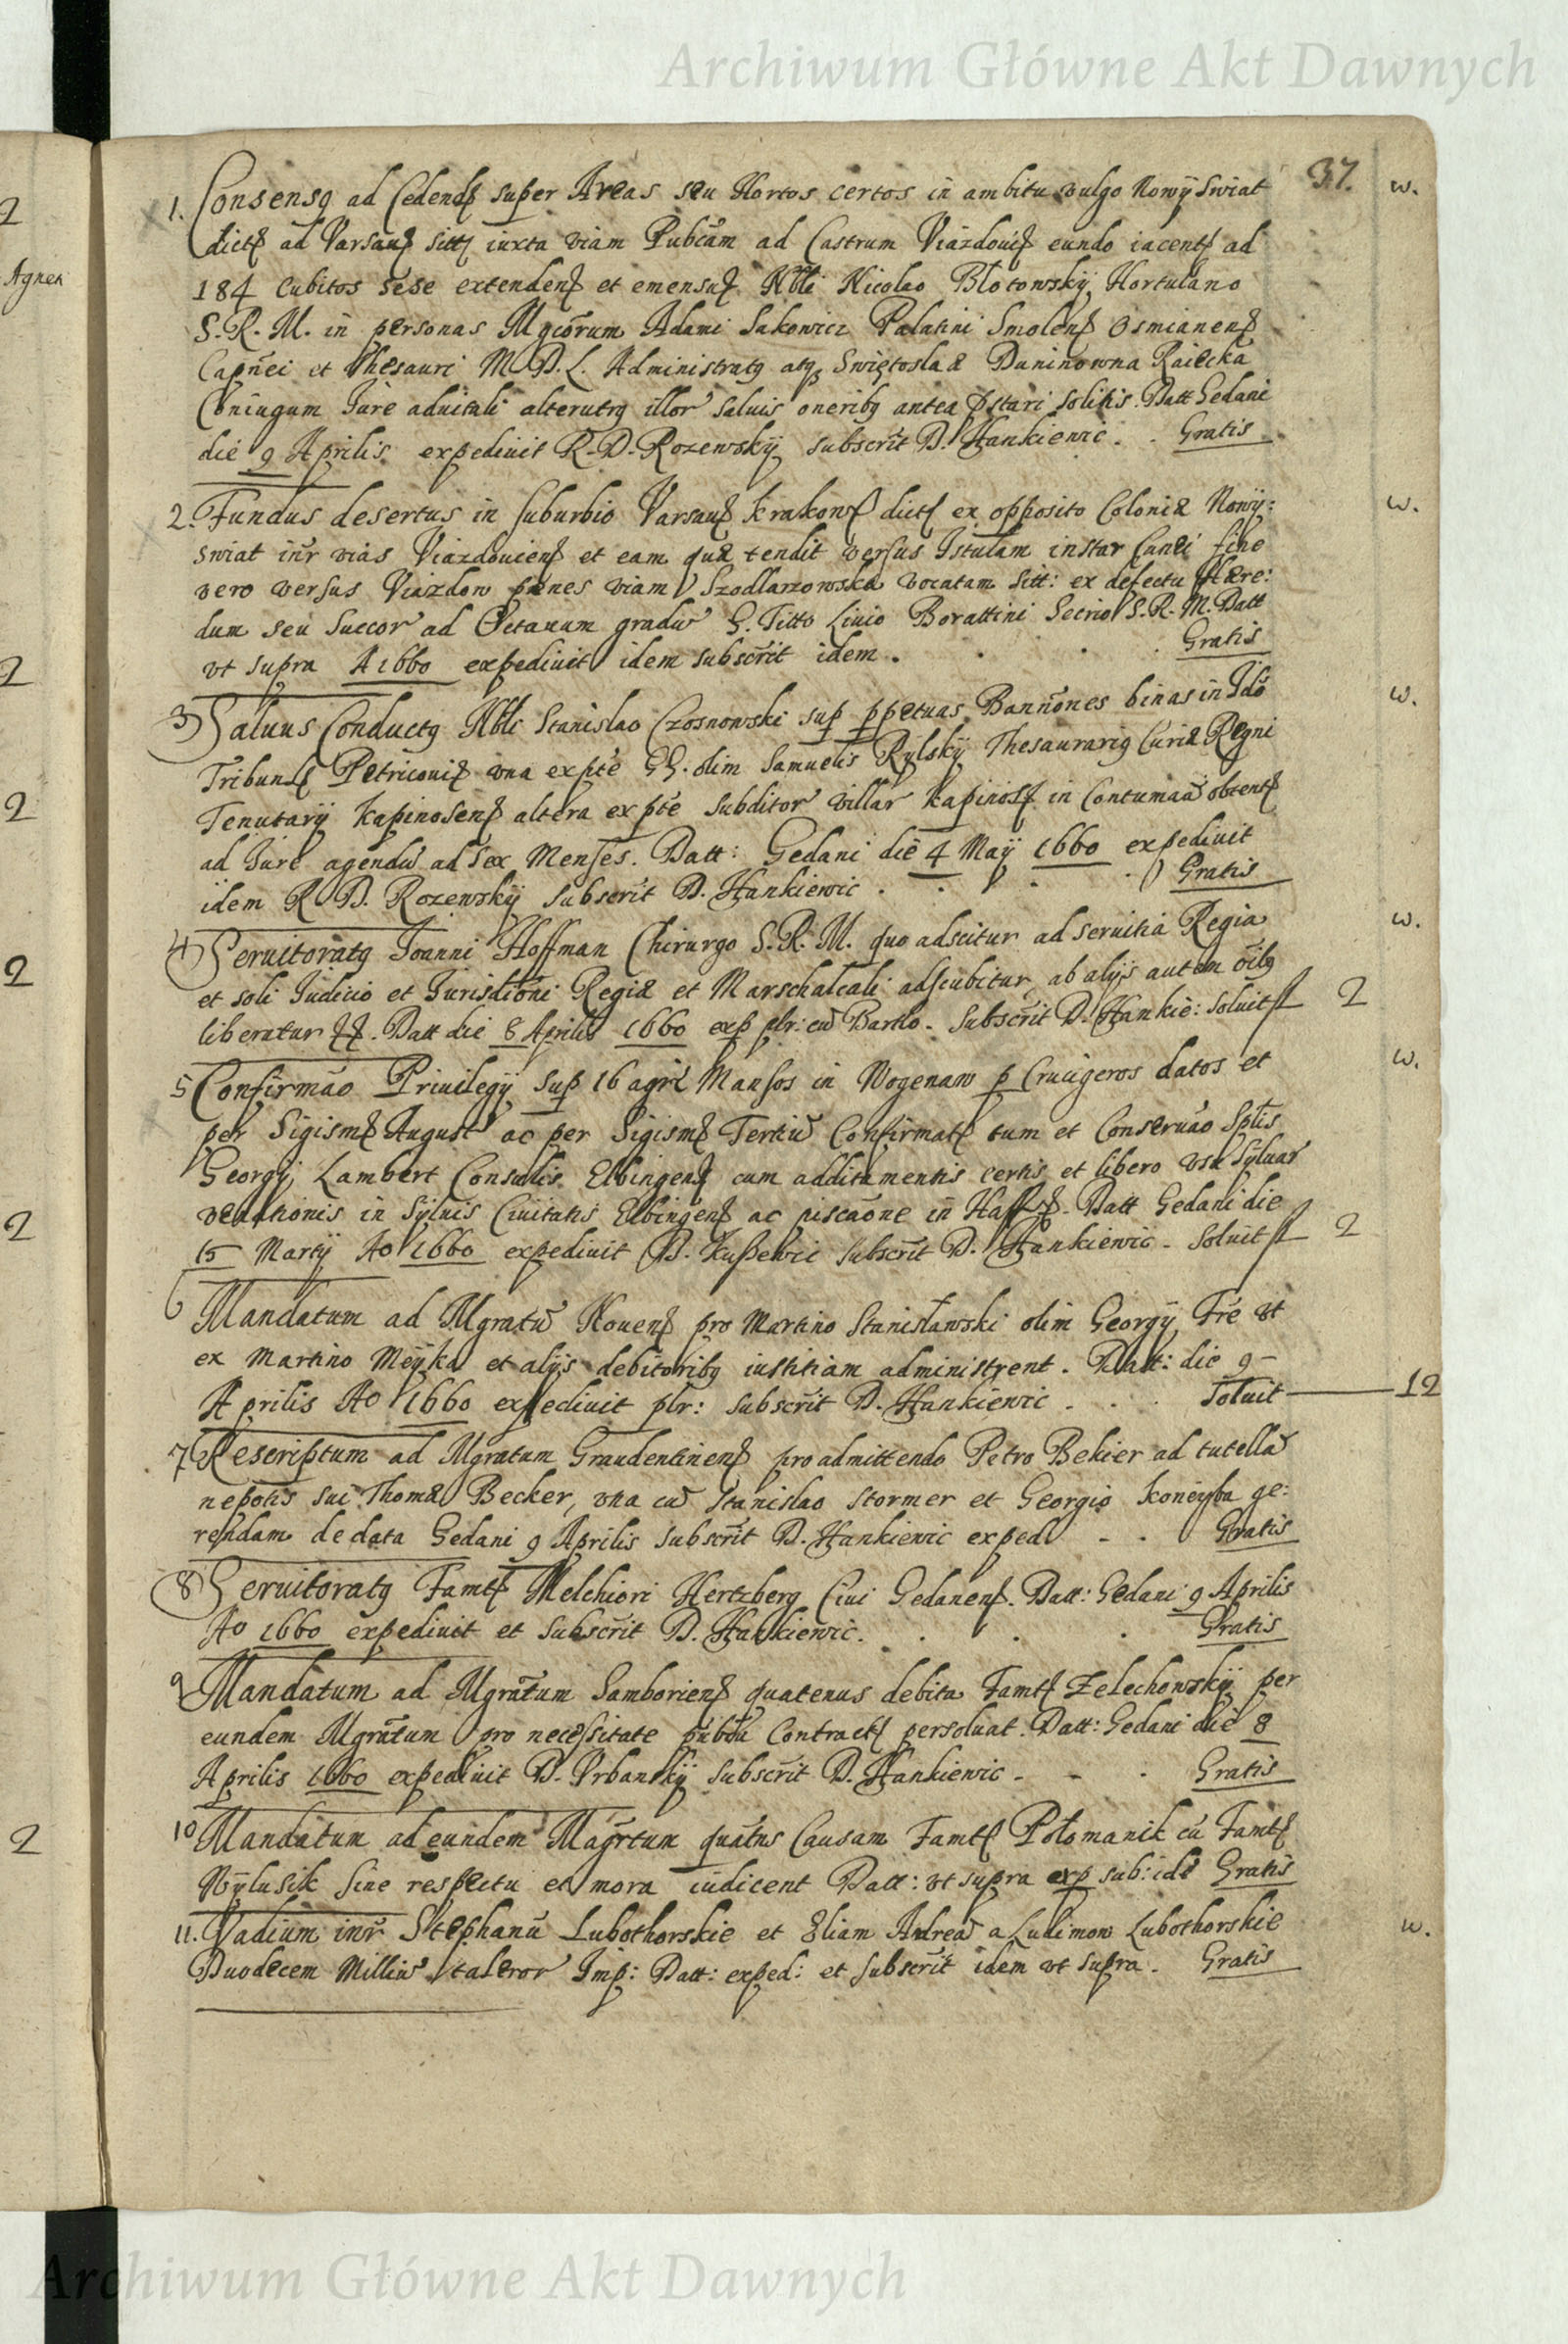 Archiwum Główne Akt Dawnych
37.
1. Consensq ad Cedendꝭ super Areas seu Hortos certos in ambitu vulgo Nowÿ Swiat w.
dictꝭ ad Varsauꝭ sittꝭ iuxta viam Pubcam ad Castrum Viazdouiꝭ eundo iacentꝭ ad
184 Cubitos sese extendenꝭ et emensuꝭ Nbli Nicolao Błotowskÿ Hortulano
S. R. M. in personas Mgcorum Adami Sakowicz Palatini Smolenꝭ Osmianenꝭ
Capnei et Thesauri M. D. L. Administratq atqꝫ Swiętoslaæ Duninowna Raiecka
Coniugum Jure aduitali alterutrq illor saluis oneribq antea pstari solitis. Datt Gedani
die 9 Aprilis expediuit R. D. Rozewskÿ subscrit D. Hankiewic . . Gratis
2. Fundus desertus in suburbio Varsauꝭ Krakowꝭ dictꝭ ex opposito Coloniæ Nowÿ: w.
swiat inr vias Viazdouienꝭ et eam quæ tendit versus Istulam instar fine
vero versus Viazdow penes viam vocatam sitt: ex defectu Hære:
dum seu Succor ad Octauum gradu G. Titto Liuio Borattini Secrio S. R. M. Datt
vt supra A 1660 expediuit idem subscrit idem . . . . Gratis
3 Saluus Conductq Nbli Stanislao Czosnowski sup ppetuas Bannones binas in Ido w.
Tribunlꝭ Petricouiꝭ vna ex pte GG. olim Samuelis Rylskÿ Thesaurarig Curiæ Regni
Tenutarÿ Kapinosenꝭ altera ex pte subditor villar Kapinosꝭ in Contumaa obtentꝭ
ad Jure agendu ad sex Menses. Datt: Gedani die 4 Maÿ 1660 expediuit
idem R D. Rozewskÿ subscrit D. Hankiewic . . . . Gratis
4 Seruitoratq Joanni Hoffman Chirurgo S. R. M. quo adscitur ad seruitia Regia w.
et soli Judicio et Jurisdioni Regiæ et Marschalcali adscubitur ab alijs autem oibq
liberatur . Datt die 8 Aprilis 1660 exp plr: cu Bartło. Subscrit D. Hankie: Soluit fl 2
5 Confirmao Priuilegÿ sup 16 agri Mansos in Nogenaw p Crucigeros datos et w.
per Sigismꝭ August ac per Sigismꝭ Tertiu Confirmatꝭ tum et Conseruao Sptis
Georgÿ Lambert Consulis Elbingenꝭ cum additamentis certis et libero vsu Syluar
venationis in Syluis Ciuitatis Elbingenꝭ ac piscaone in . Datt Gedani die
15 Martÿ Ao 1660 expediuit D. Kuszewic subscrit D. Hankiewic . Soluit fl 2
6 Mandatum ad Mgratu Nouenꝭ pro Martino Stanisławski olim Georgÿ Fre vt
ex Martino Meyka et alijs debitoribq iustitiam administrent. Datt: die 9
Aprilis Ao 1660 expediuit plr: subscrit D. Hankiewic . . . Soluit — 12
7 Rescriptum ad Mgratum Graudentinenꝭ pro admittendo Petro Bekier ad tutella
nepotis sui Thomæ Becker, vna cu Stanislao Stormer et Georgio Koneyba ge:
rendam de data Gedani 9 Aprilis subscrit D. Hankiewic exped - . Gratis
8 Seruitoratq Famtꝭ Melchiori Hertzberg Ciui Gedanenꝭ. Datt: Gedani 9 Aprilis
Ao 1660 expediuit et subscrit D. Hankiewic. . . . Gratis
9 Mandatum ad Mgratum Samborienꝭ quatenus debita Famtꝭ Zelechowskÿ per
eundem Mgratum pro necessitate pubca Contractꝭ persoluat. Datt: Gedani die 8
Aprilis 1660 expediuit D. Vrbanskÿ subscrit D. Hankiewic - - . Gratis
10 Mandatum ad eundem Magrtum quatns Causam Famtꝭ Połomanik cu Famtꝭ
Wylusik sine respectu et mora iudicent Datt: vt supra exp sub: ide Gratis
11. Vadium inr Stephanu Lubothorskie et Eliam Andrea a Ludimow Lubothorskie w.
Duodecem Milliu taleror Imp: Datt: exped: et subscrit idem vt supra . Gratis
Agnen
2
2
2
2
2
2
Archiwum Główne Akt Dawnych